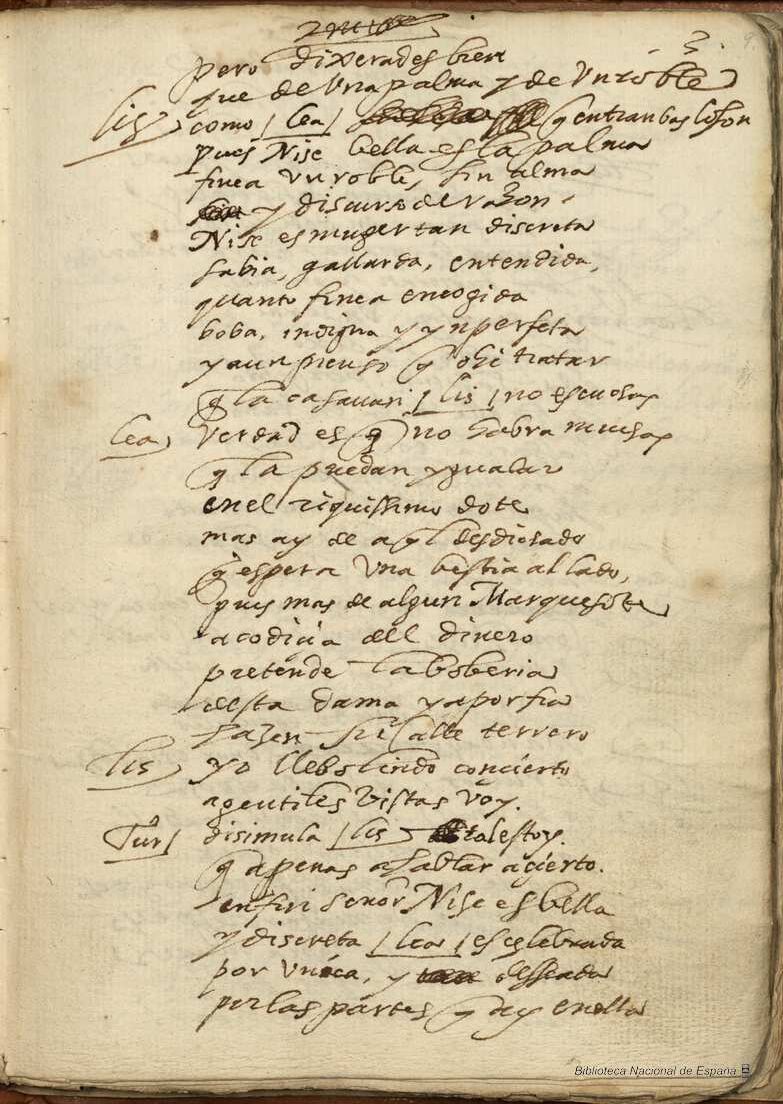 3.
pero dixerades bien
que de una palma y de un roble
lis como | lea | q entranbas lo son
pues Nise bella es la palma
finea un roble, sin alma
y discurso de razon.
Nise es muger tan discreta
sabia, gallarda, entendida,
quanto finea encogida
boba, indigna y ynperfeta
y aun pienso q ohi tratar
q la casavan | lis | no escuchas
lea verdad es q no habra muchas
q la puedan ygualar
en el riquissimo dote
mas ay de aql desdichado
q espera una bestia al lado,
pues mas de algun Marquesote
a codicia del dinero
pretende la boberia
desta dama y a porfia
hazen su calle terrero
lis yo llebo lindo concierto
a gentiles vistas voy.
Tur disimula | lis tal estoy.
q apenas a hablar acierto.
en fin señor Nise es bella
y discreta | lea | es celebrada
por unica, y desseada
por las partes q ay en ella
Biblioteca Nacional de España